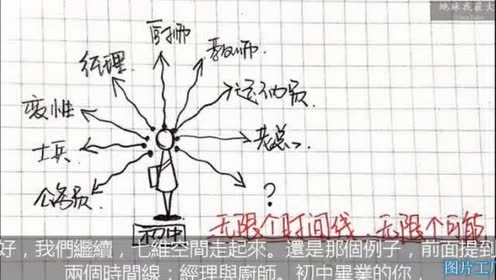 地球我最大
厨师
经理
教师
变性
运动员
士兵
老总
公务员
?
初中
无限个时间线，无限个可能
好，我們繼續，七維空間走起來。還是那個例子，前面提到
兩個時間線：經理與廚師。初中畢業的你
图片工厂